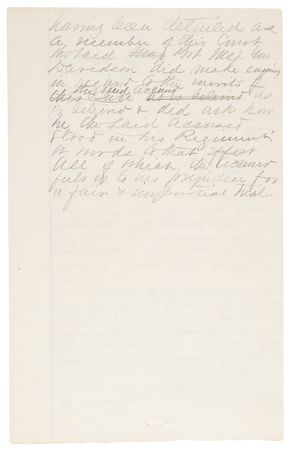 having been detailed as
a member of this Court
the said Brt Maj. Wm
Davidson did make enquiry
in regard to the merits of
the said accused as
is alleged & did ask how
the said Accused
stood in his Regiment
or words to that effect
All of which the accused
feels is to his prejudice for
a fair & impartial trial.